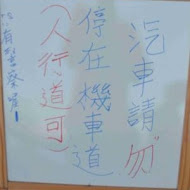 汽車請勿
停在機車道
(人行道可)
有警察